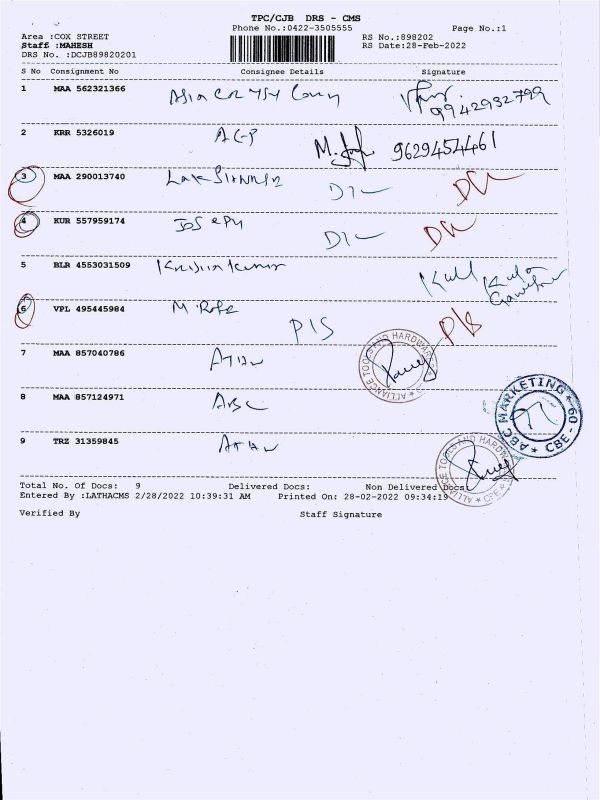 TPC/CJB DRS - CMS
Phone No.:0422-3505555 Page No.:1
Area :COX STREET RS No.:898202
Staff :MAHESH RS Date:28-Feb-2022
DRS No. :DCJB89820201
S No Consignment No Consignee Details Signature
1 MAA 562321366 9942932799
2 KRR 5326019 ACP 9629454461
3 MAA 290013740
4 KUR 557959174 Joseph
5 BLR 4553031509 Krishnakumar
6 VPL 495445984 P/S P/S
7 MAA 857040786
ALLIANCE TOOLS AND HARDWARE
8 MAA 857124971 ABC
ABC MARKETING CBE - 09
9 TRZ 31359845
ALLIANCE TOOLS AND HARDWARE CBE
Total No. Of Docs: 9 Delivered Docs: Non Delivered Docs:
Entered By :LATHACMS 2/28/2022 10:39:31 AM Printed On: 28-02-2022 09:34:19
Verified By Staff Signature